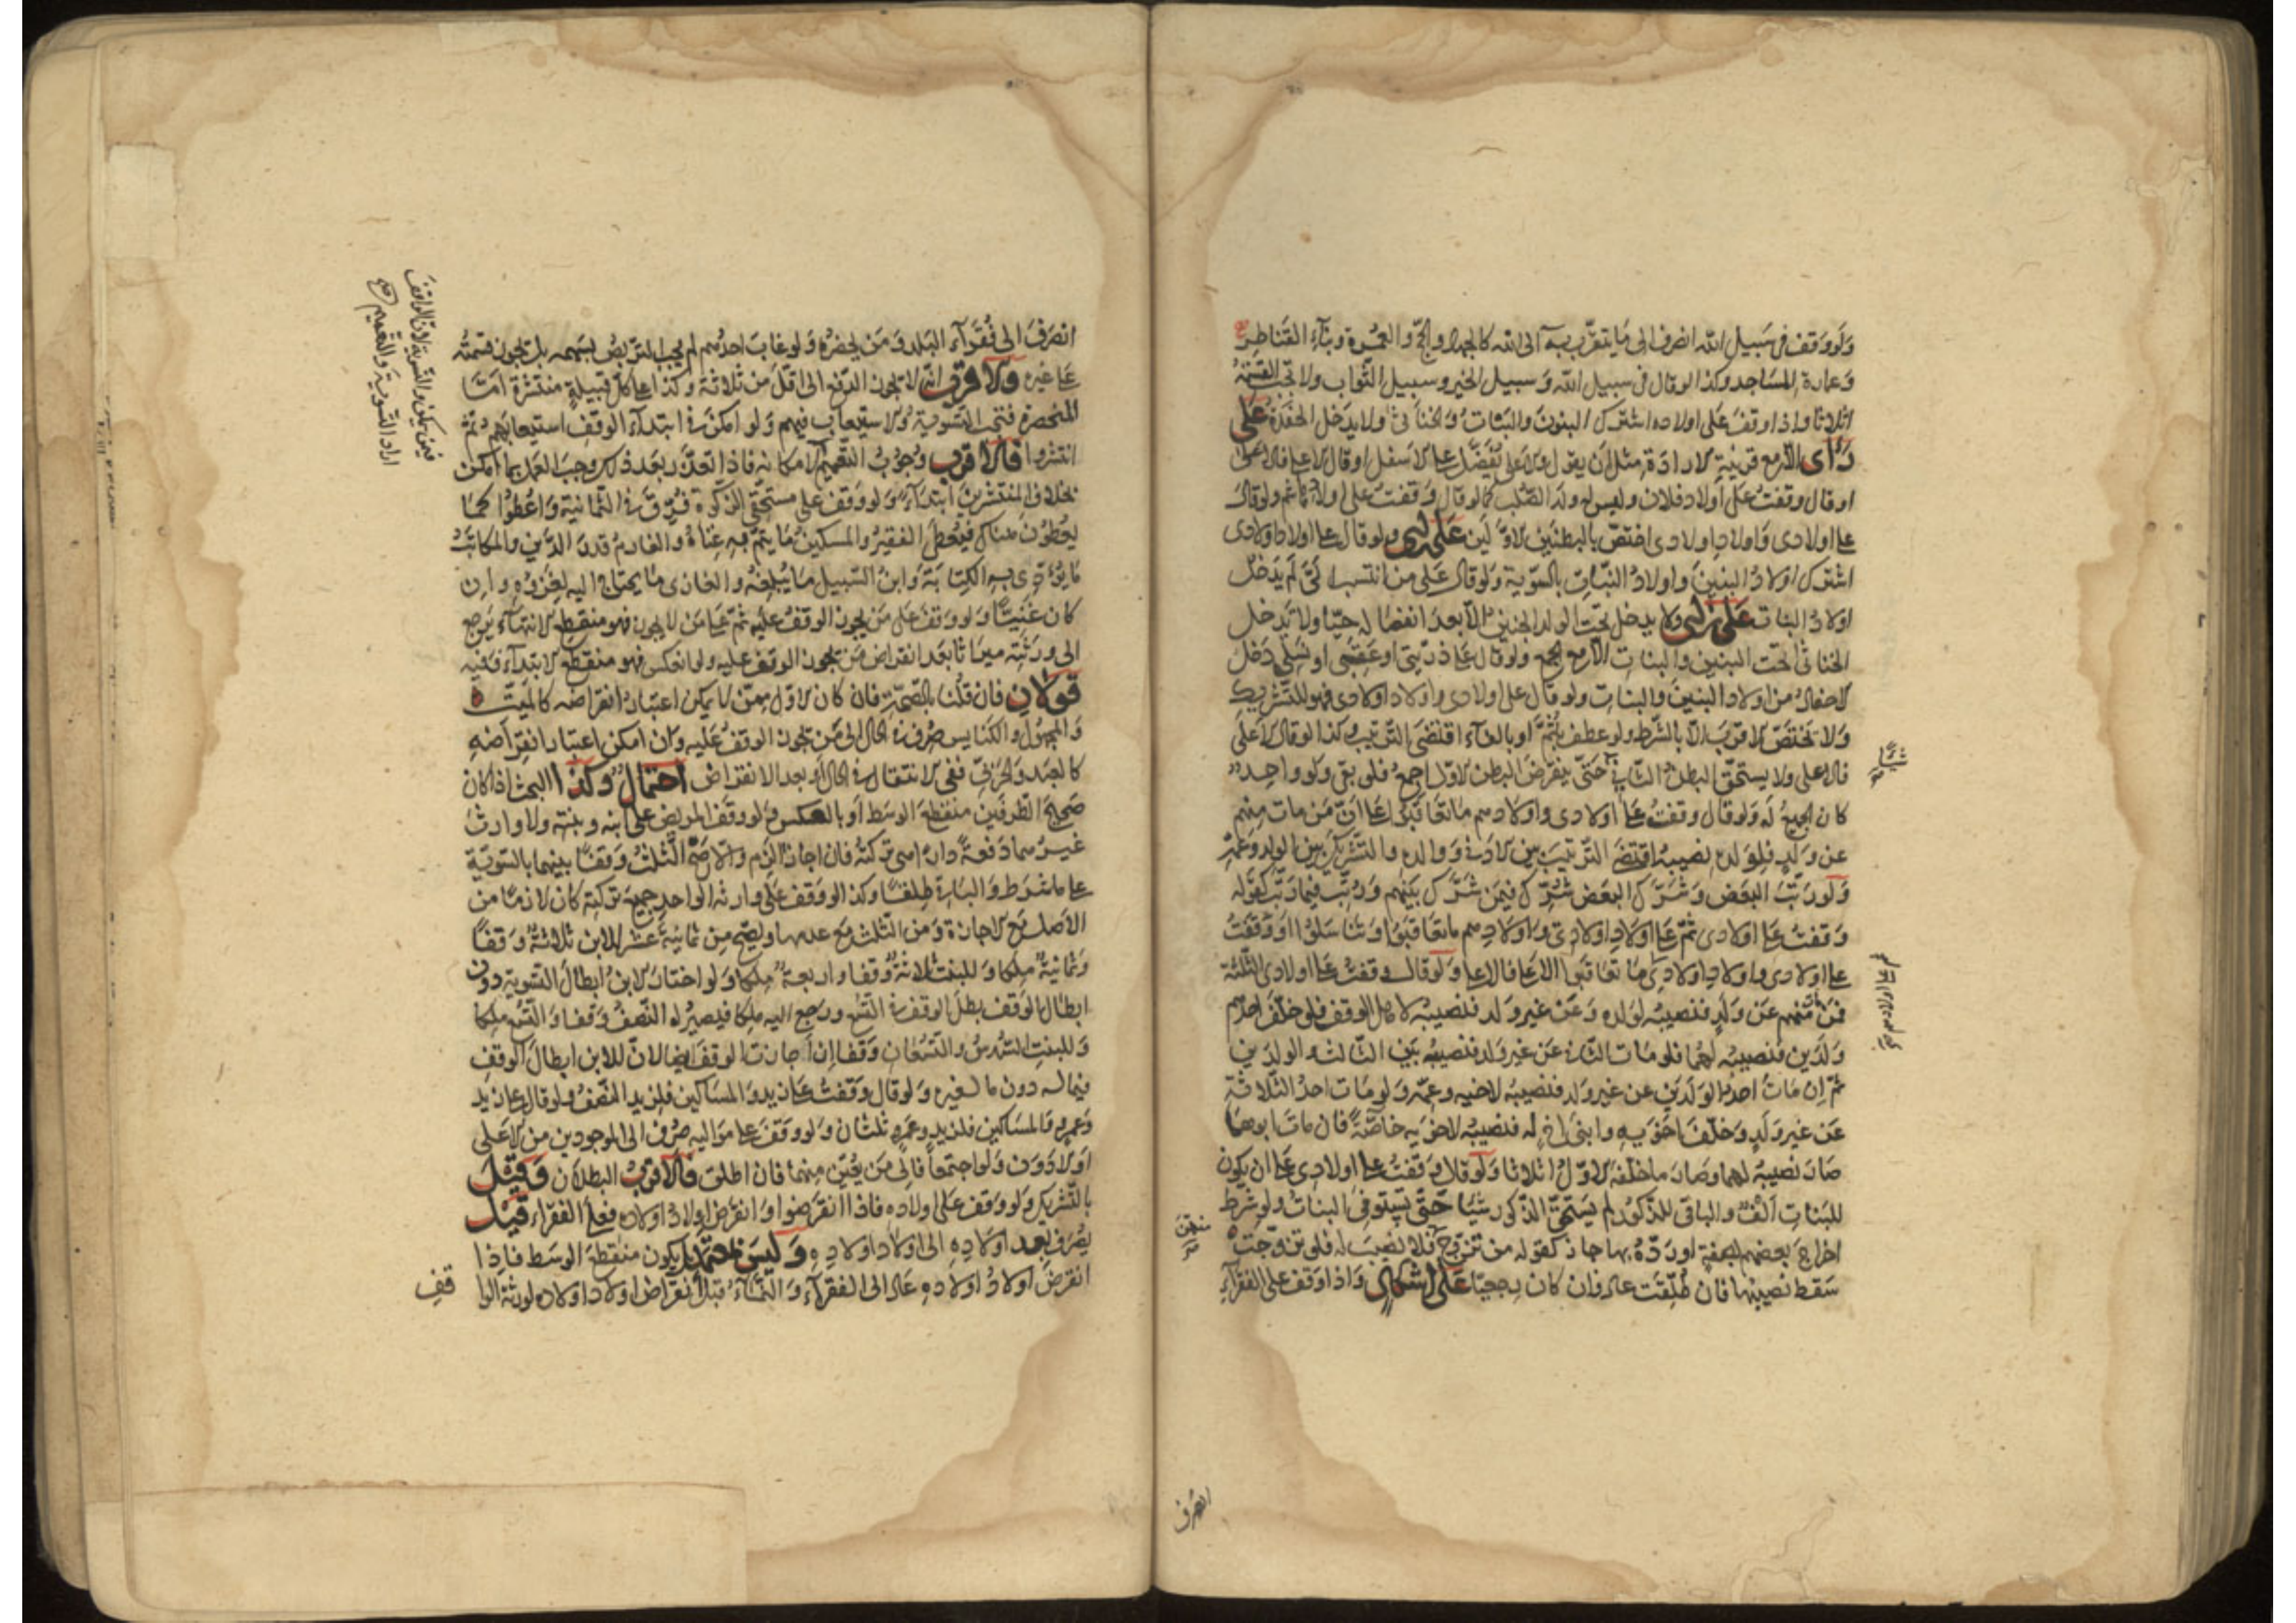 ولو وقف في سبيل الله انصرف الى ما يتقرّب به الى الله كالجهاد والحجّ والعمرة وبناء القناطر
وعمارة المساجد وكذا لو قال في سبيل الله وسبيل الخير وسبيل الثواب ولا تجب القسمة
اثلاثا واذا وقف على اولاده اشترك البنون والبنات والخناثى ولا يدخل الحفدة على
رأى الّا مع قرينة الارادة مثل ان يقول الاعلى يفضل على الاسفل او قال الاعلى فالاعلى
او قال وقفت على اولاد فلان وليس له ولد الصلب كما لو قال وقفت على اولاد هاشم ولو قال
على اولادى واولاد اولادى اختصّ بالبطنين الاوّلين على رأى ولو قال على اولاد اولادى
اشترك اولاد البنين واولاد البنات بالسويّة ولو قال على من انتسب الىّ لم يدخل
اولاد البنات على رأى ولا يدخل تحت الولد الجنين الّا بعد انفصاله حيّا ولا تدخل
الخناثى تحت البنين والبنات الّا مع الجمع ولو قال على ذرّيتى او عقبى او نسلى دخل
الاحفاد من اولاد البنين والبنات ولو قال على اولادى واولاد اولادى فهو للتشريك
ولا تختصّ الاقرب الّا بالشرط ولو عطف بثمّ او بالفاء اقتضى الترتيب وكذا لو قال الاعلى
فالاعلى ولا يستحقّ البطن الثانى حتّى ينقرض البطن الاوّل اجمع فلو بقى ولو واحد
كان الجميع له ولو قال وقفت على اولادى واولادهم ما تعاقبوا على انّ من مات منهم
عن ولد فلولده نصيبه اقتضى الترتيب بين الاد ووالده والتشريك بين الولد وعمّه
ولو رتّب البعض وشرّك البعض شرّك فيمن شرّك بينهم ورتّب فيما رتّب كقوله
وقفت على اولادى ثمّ على اولاد اولادى واولادهم ما تعاقبوا وتناسلوا او وقفت
على اولادى واولاد اولادى ما تعاقبوا الاعلى فالاعلى ولو قال وقفت على اولادى الثلثة
فمن مات منهم عن ولد فنصيبه لولده وعن غير ولد فنصيبه لاهل الوقف فلو خلّف احدهم
ولدين فنصيبه لهما فلو مات الثانى عن غير ولد فنصيبه بين الثالث والولدين
ثمّ ان مات احد الولدين عن غير ولد فنصيبه لاخيه وعمّه ولو مات احد الثلاثة
عن غير ولد وخلّف اخويه وابنى اخ له فنصيبه لاخويه خاصّة فان مات ابوهما
صار نصيبه لهما وصار ما خلّفه الاوّل اثلاثا ولو قال وقفت على اولادى على ان يكون
للبنات الف والباقى للذكور لم يستحقّ الذكور شيئا حتّى يستوفى البنات ولو شرط
اخراج بعضهم بصفة او ردّه بها جاز كقوله من تزوّج فلا نصيب له فلو تزوّجت
سقط نصيبها فان طلّقت عاد وان كان رجعيّا على اشكال واذا وقف على الفقراء
شيئا
على اولادهم
منهنّ
انصرف
انصرف الى فقراء البلد ومن يحضره ولو غاب احدهم لم يجب التربّص بسهمه بل تجوز قسمته
على غيره والاقرب انّه لا يجوز الدفع الى اقلّ من ثلاثة وكذا على كلّ قبيلة منتشرة امّا
المنحصرة فتجب التسوية والاستيعاب فيهم ولو امكن في ابتداء الوقف استيعابهم ثمّ
انتشروا فالاقرب وجوب التعميم لامكانه فاذا تعذّر بعد ذلك وجب العمل بما امكن
بخلاف المنتشرين ابتداء ولو وقف على مستحقّى الزكوة فرّق في الثمانية واعطوا كما
يعطون هناك فيعطى الفقير والمسكين ما يتمّ به غناه والغارم قدر الدين والمكاتب
ما يؤدّى به الكتابة وابن السبيل ما يبلغه والغازى ما يحتاج اليه لغزوه وان
كان غنيّا ولو وقف على من يجوز الوقف عليه ثمّ على من لا يجوز فهو منقطع الانتهاء يرجع
الى ورثته ميراثا بعد انقراض من يجوز الوقف عليه ولو انعكس فهو منقطع الابتداء ففيه
قولان فان قلنا بالصحّة فان كان الاوّل ممّن لا يمكن اعتبار انقراضه كالميّت
والمجهول والكنايس صرف في الحال الى من يجوز الوقف عليه وان امكن اعتبار انقراضه
كالعبد والحربىّ ففى الانتقال في الحال او بعد الانقراض احتمال وكذا البحث اذا كان
صحيح الطرفين منقطع الوسط او بالعكس ولو وقف المريض على ابنه وبنته ولا وارث
غيرهما دفعة دارا هى تركته فان اجازا لزم والّا صحّ الثلث وقفا بينهما بالسويّة
على ما شرط والباقى طلقا وكذا لو وقف على وارثه الواحد جميع تركته كان لازما من
الاصل مع الاجازة ومن الثلث مع عدمها ويصحّ من ثمانية عشر للابن ثلاثة وقفا
وثمانية ملكا وللبنت ثلاثة وقفا واربعة ملكا ولو اختار الابن ابطال التسوية دون
ابطال الوقف بطل الوقف في التسع ورجع اليه ملكا فيصير له النصف وقفا والتسع ملكا
وللبنت السدس والتسعان وقفا ان اجازت الوقف ايضا لانّ للابن ابطال الوقف
فيما له دون ما لغيره ولو قال وقفت على زيد والمساكين فلزيد النصف ولو قال على زيد
وعمرو والمساكين فلزيد وعمرو ثلثان ولو وقف على مواليه صرف الى الموجودين من الاعلى
او الادون ولو اجتمعا فالى من يعيّن منهما فان اطلق فالاقرب البطلان وقيل
بالتشريك ولو وقف على اولاده فاذا انقرضوا وانقرض اولاد اولاده فعلى الفقراء قيل
يصرف بعد اولاده الى اولاد اولاده وليس بمعتمد بل يكون منقطع الوسط فاذا
انقرض اولاد اولاده عاد الى الفقراء والنماء قبل انقراض اولاد اولاده لورثة الوا
قف